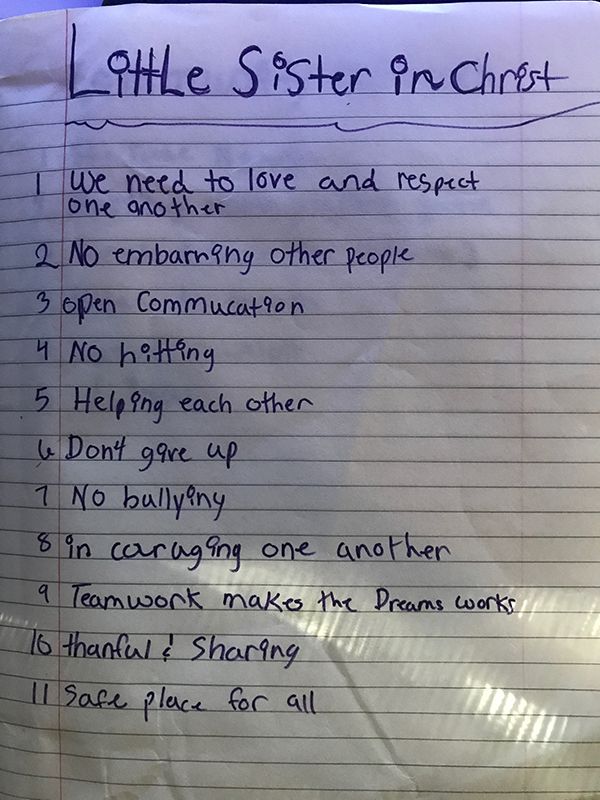 Little Sister in Christ
1 We need to love and respect
one another
2 No embarning other people
3 open Commucation
4 No hitting
5 Helping each other
6 Don't give up
7 No bullying
8 in couraging one another
9 Teamwork makes the Dreams works
10 thanful & Sharing
11 Safe place for all